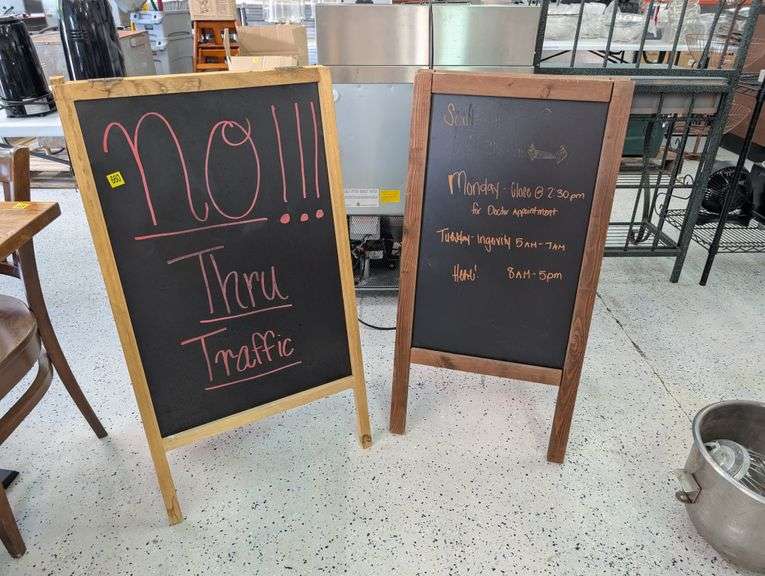 NO!!!
660
Thru
Traffic
Monday - Close @ 2:30pm
for Doctor Appointment
Tuesday - Ingevity 5AM - 7AM
Here! 8AM - 5pm